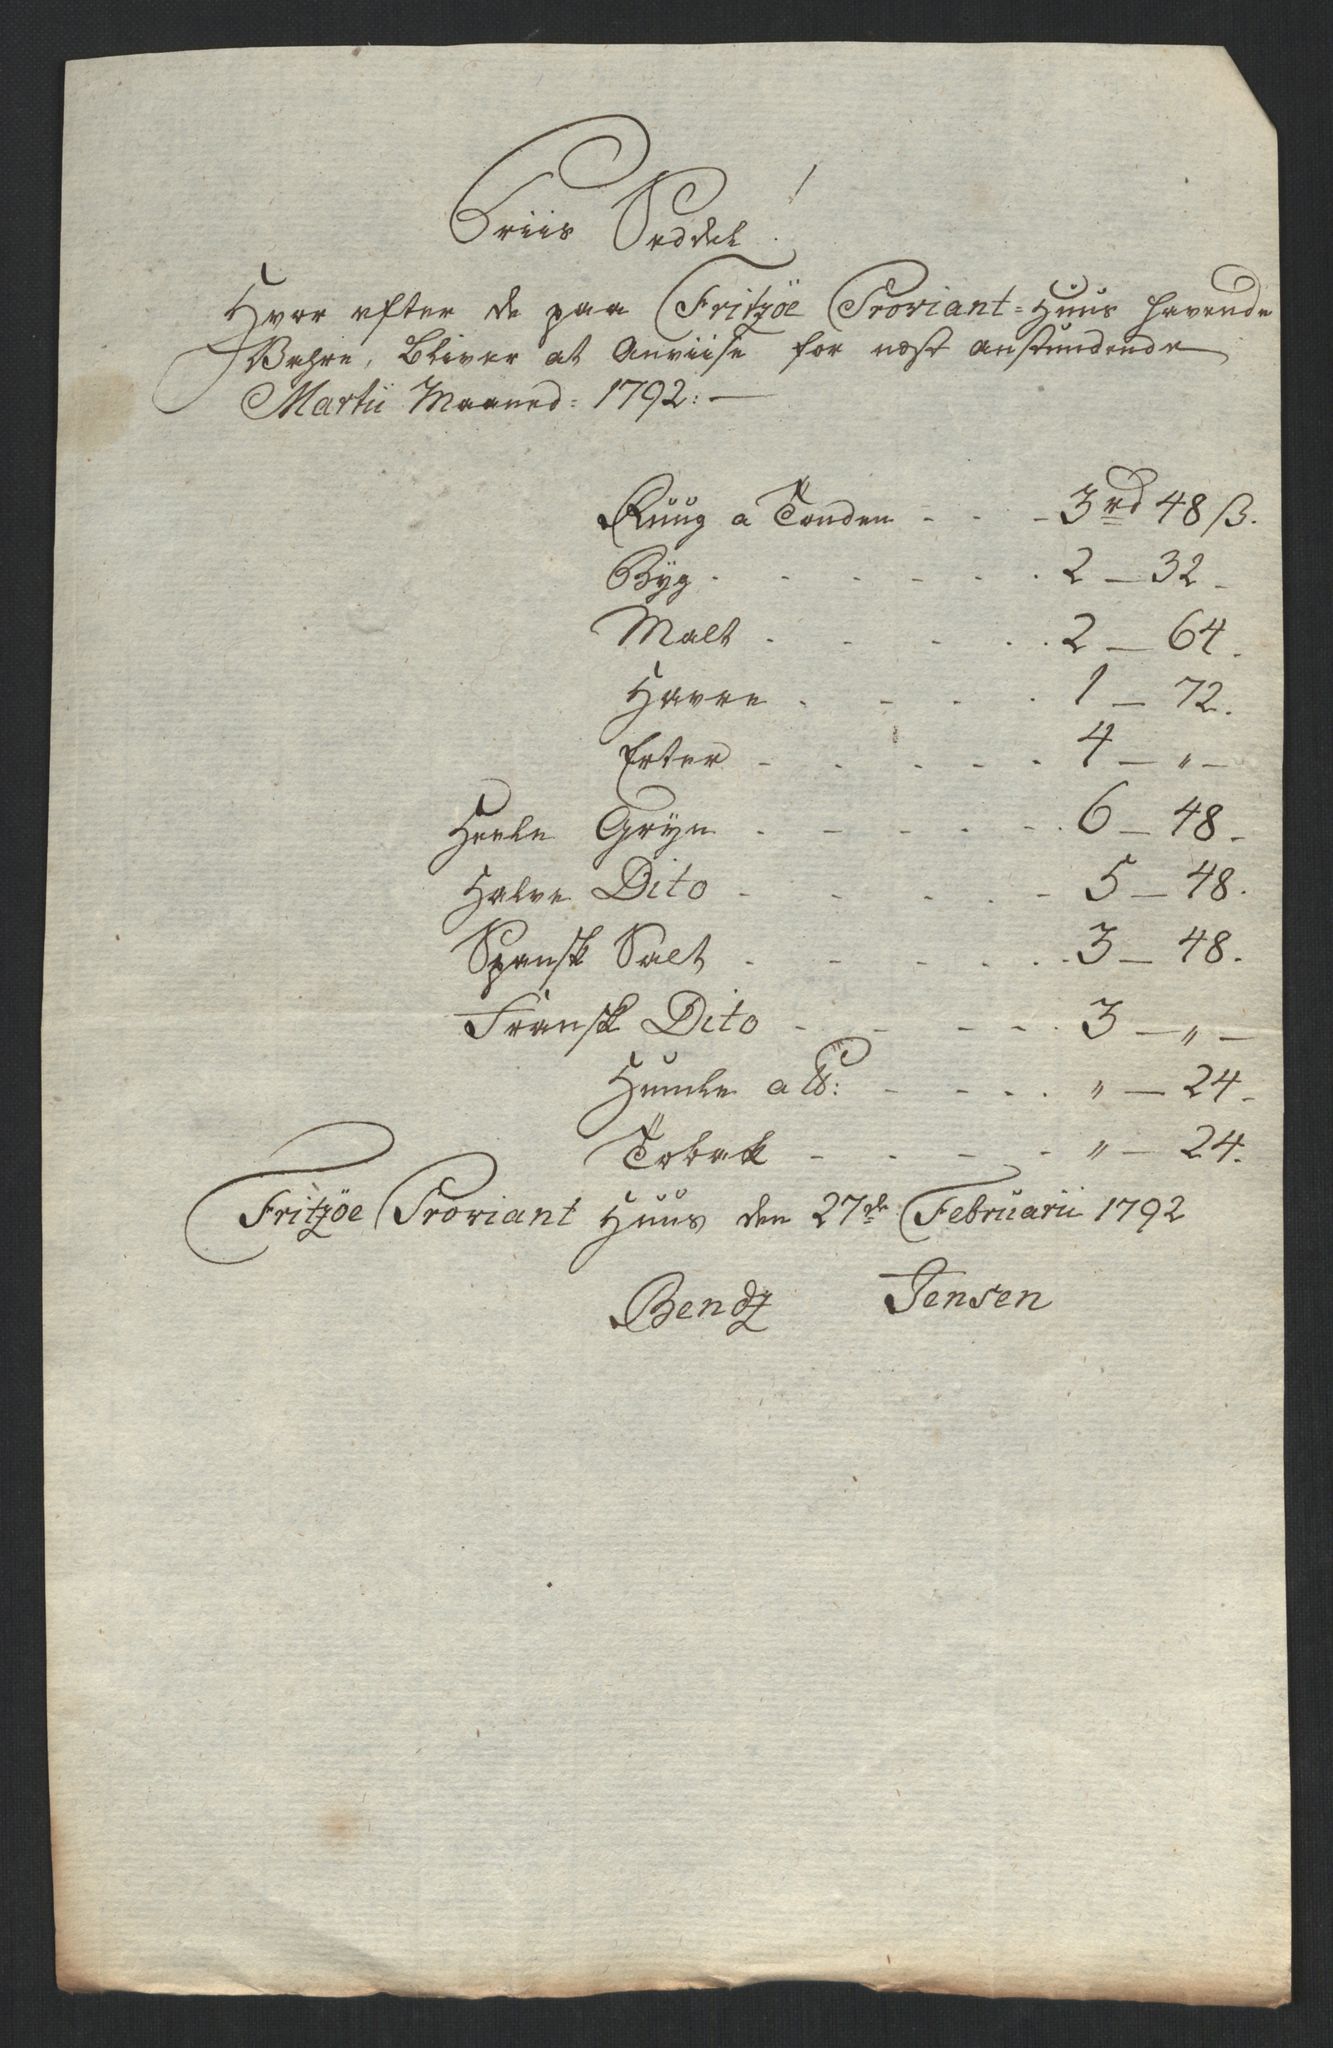 Priis Seddel!
Hvor efter de paa Fritzöe Proviant=Huus havende
Vahre, bliver at Anviise for næst anstundende
Martii Maaned: 1792:—
Ruug a Tønden - - - 3 rd 48 ß.
Byg - - - - - - 2 — 32 -
Malt - - - - - 2 — 64.
Havre - - - - 1 — 72.
Erter - - - - - 4 — „ —
Heele Gryn - - - - - 6 — 48 -
Halve Dito - - - - - 5 — 48.
Spansk Salt - - - - - - 3 — 48.
Fransk Dito - - - - - 3 — „ —
Humle a ℔: - - - - „ — 24 -
Tobak - - - - „ — 24.
Fritzöe Proviant Huus den 27de Februarii 1792
Bendz Jensen